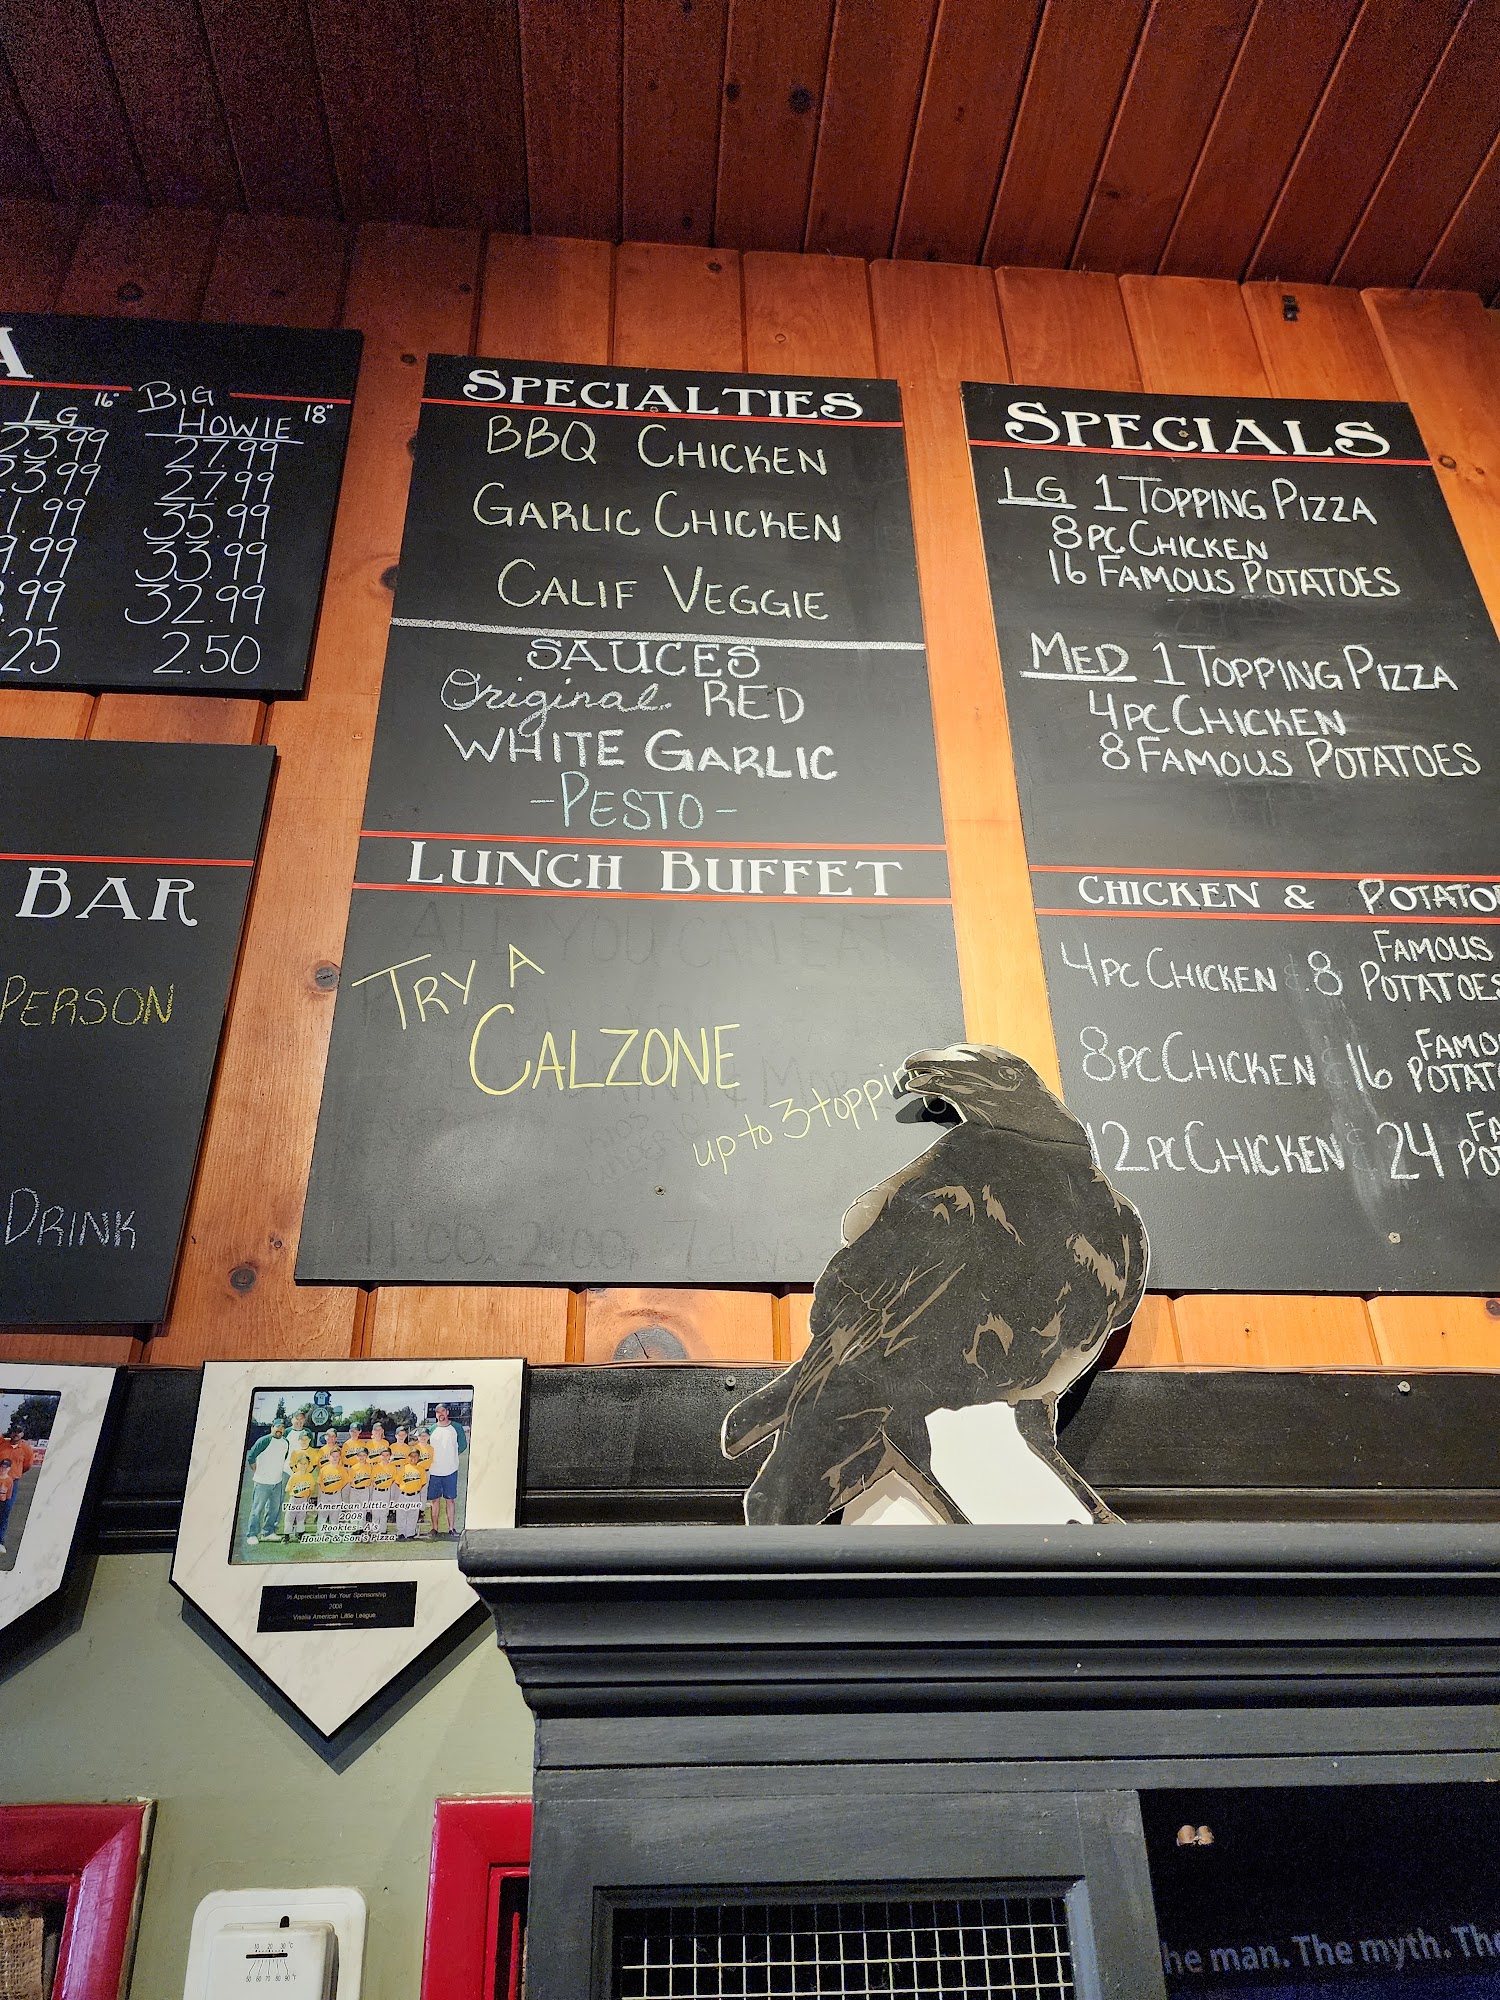 A
LG 16" BIG HOWIE 18"
23.99 27.99
23.99 27.99
1.99 35.99
9.99 33.99
.99 32.99
25 2.50
BAR
PERSON
DRINK
SPECIALTIES
BBQ CHICKEN
GARLIC CHICKEN
CALIF VEGGIE
SAUCES
Original RED
WHITE GARLIC
-PESTO-
LUNCH BUFFET
ALL YOU CAN EAT
TRY A
CALZONE
up to 3 toppin
11:00 2:00 7 days
SPECIALS
LG 1 TOPPING PIZZA
8PC CHICKEN
16 FAMOUS POTATOES
MED 1 TOPPING PIZZA
4PC CHICKEN
8 FAMOUS POTATOES
CHICKEN & POTATO
4PC CHICKEN & 8 FAMOUS POTATOES
8PC CHICKEN & 16 FAMO POTAT
12PC CHICKEN & 24 FA PO
Visalia American Little League
2008
Rookies - A's
Howie & Son's Pizza
In Appreciation for Your Sponsorship
2008
Visalia American Little League
10 20 30 °C
50 60 70 80 90 °F
he man. The myth. The